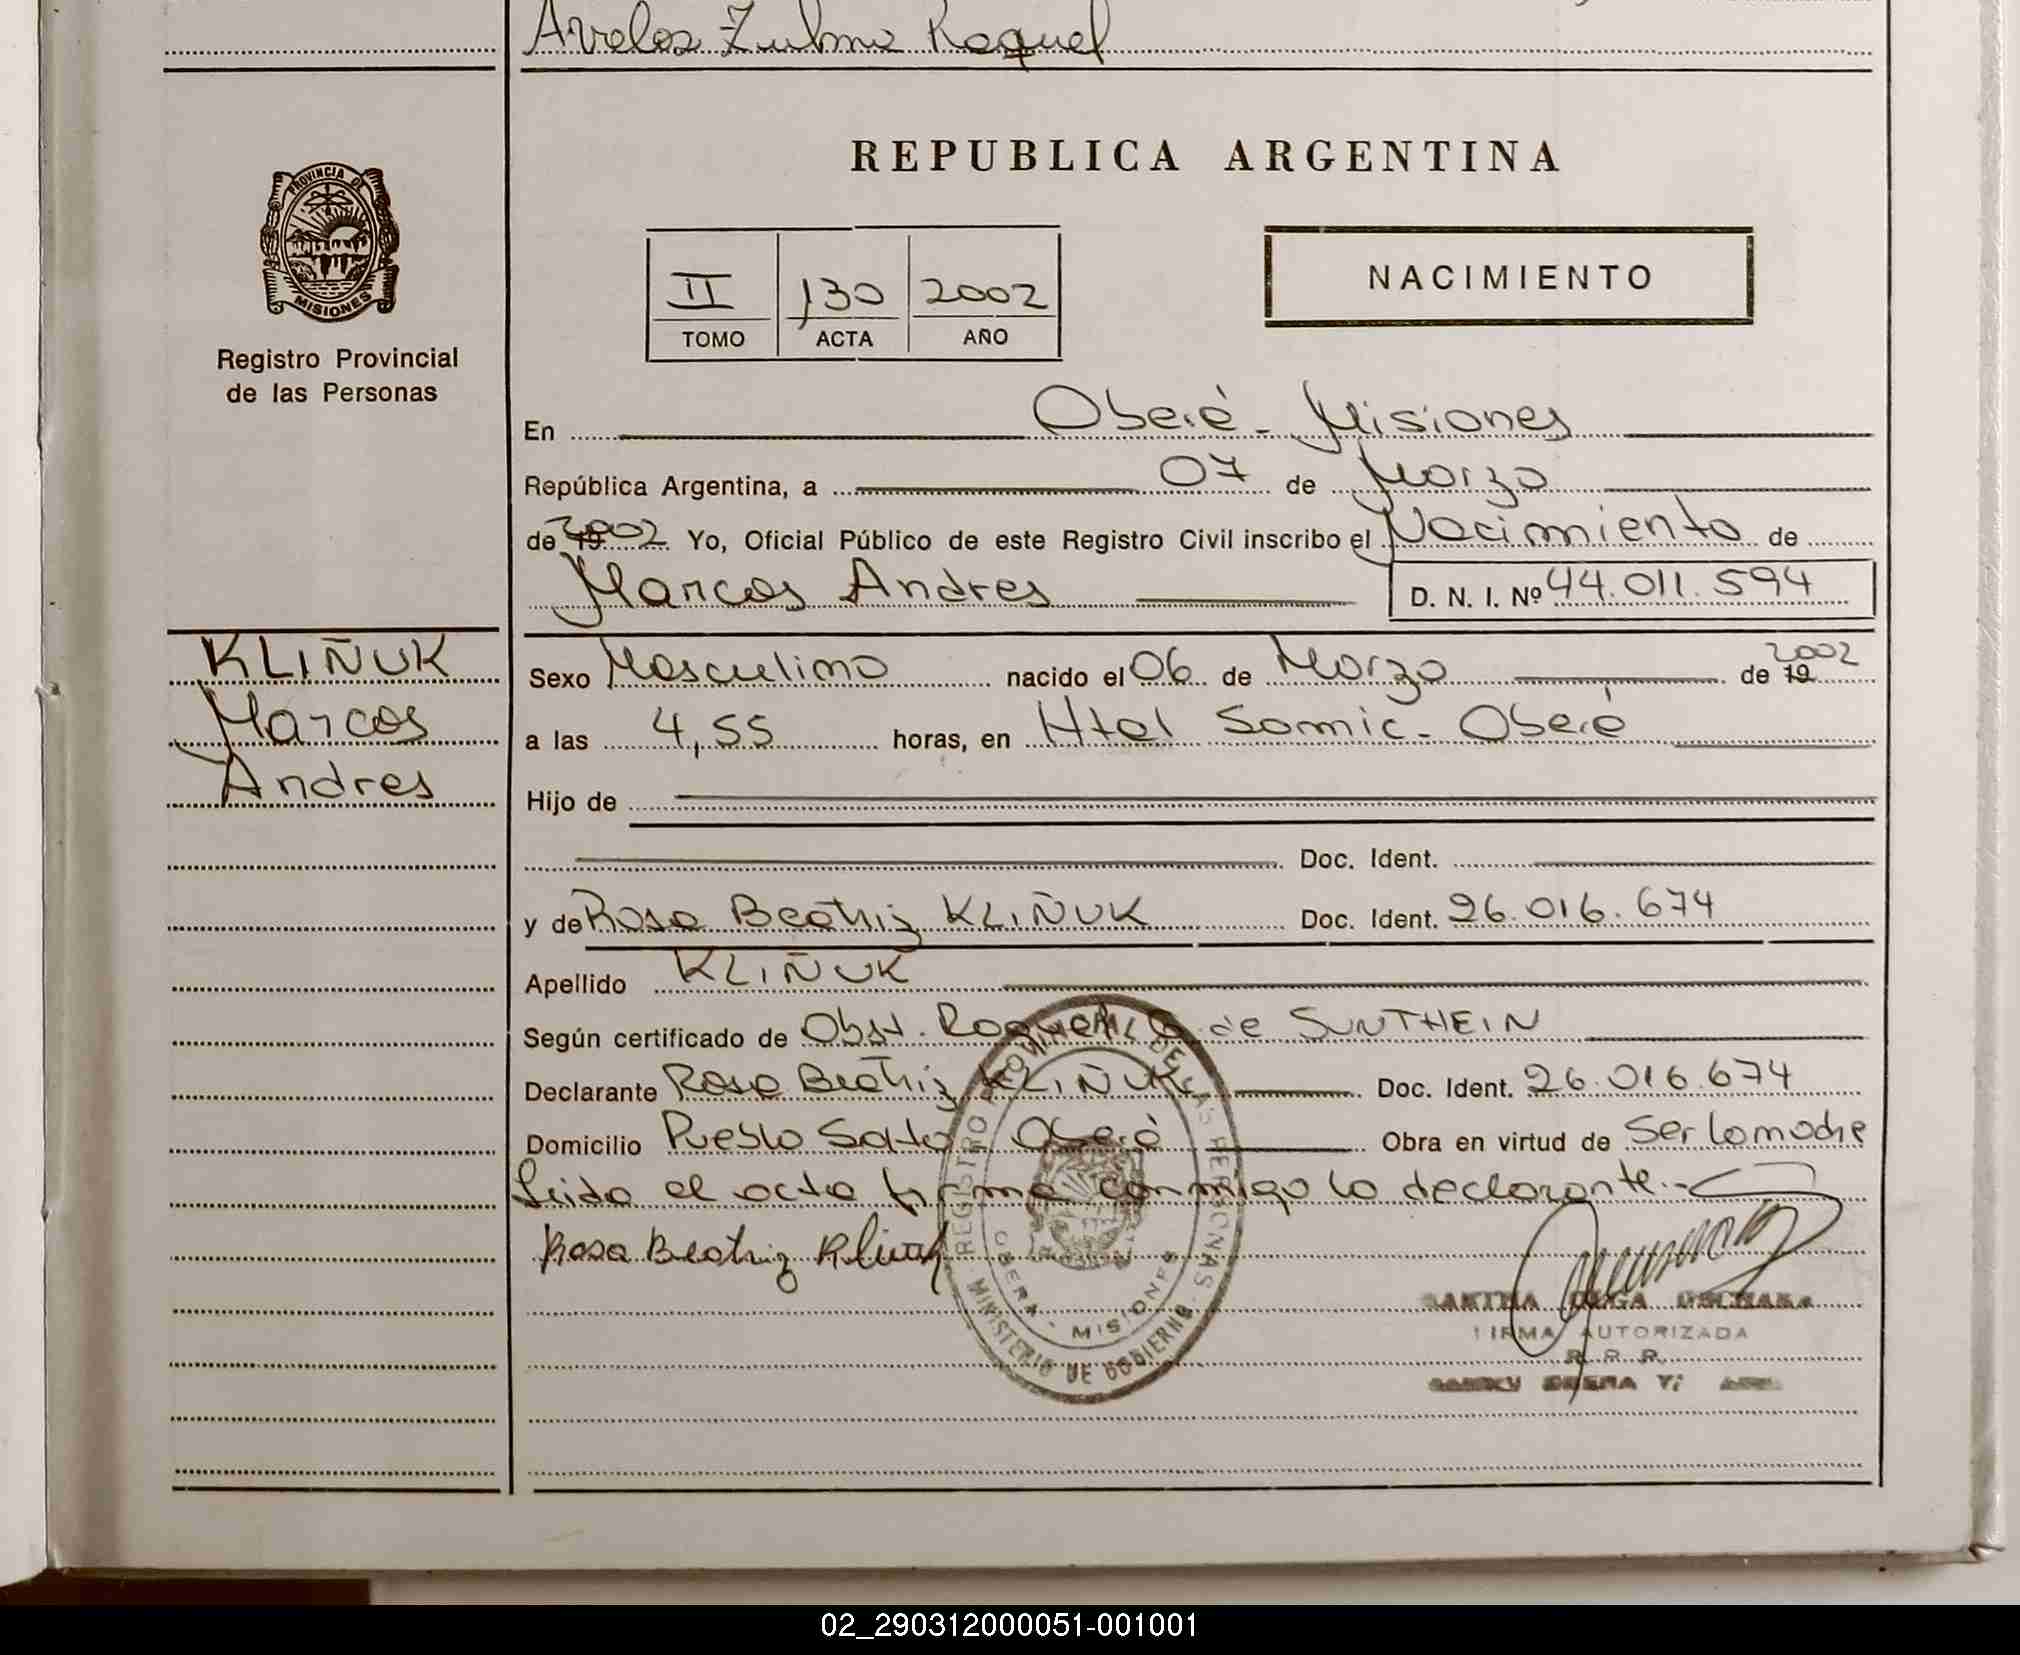 Avelos Zulma Raquel
PROVINCIA DE
MISIONES
Registro Provincial
de las Personas
REPUBLICA ARGENTINA
II 130 2002
TOMO ACTA AÑO
NACIMIENTO
En Oberá - Misiones
República Argentina, a 07 de Marzo
de 19 2002 Yo, Oficial Público de este Registro Civil inscribo el Nacimiento de
Marcos Andres D. N. I. Nº 44.011.594
KLIÑUK
Marcos
Andres
Sexo Masculino nacido el 06 de Marzo de 19 2002
a las 4,55 horas, en Htal Samic - Oberá
Hijo de
Doc. Ident.
y de Rosa Beatriz KLIÑUK Doc. Ident. 26.016.674
Apellido KLIÑUK
Según certificado de Obst. Raquel G. de SUNTHEIN
Declarante Rosa Beatriz KLIÑUK Doc. Ident. 26.016.674
Domicilio Pueblo Salto Oberá Obra en virtud de Ser la madre
Leida el acta firma conmigo la declarante.-
Rosa Beatriz Kliñuk
REGISTRO PROVINCIAL DE LAS PERSONAS - MINISTERIO DE GOBIERNO
OBERA - MISIONES
OLGA
FIRMA AUTORIZADA
R. P. P.
02_290312000051-001001